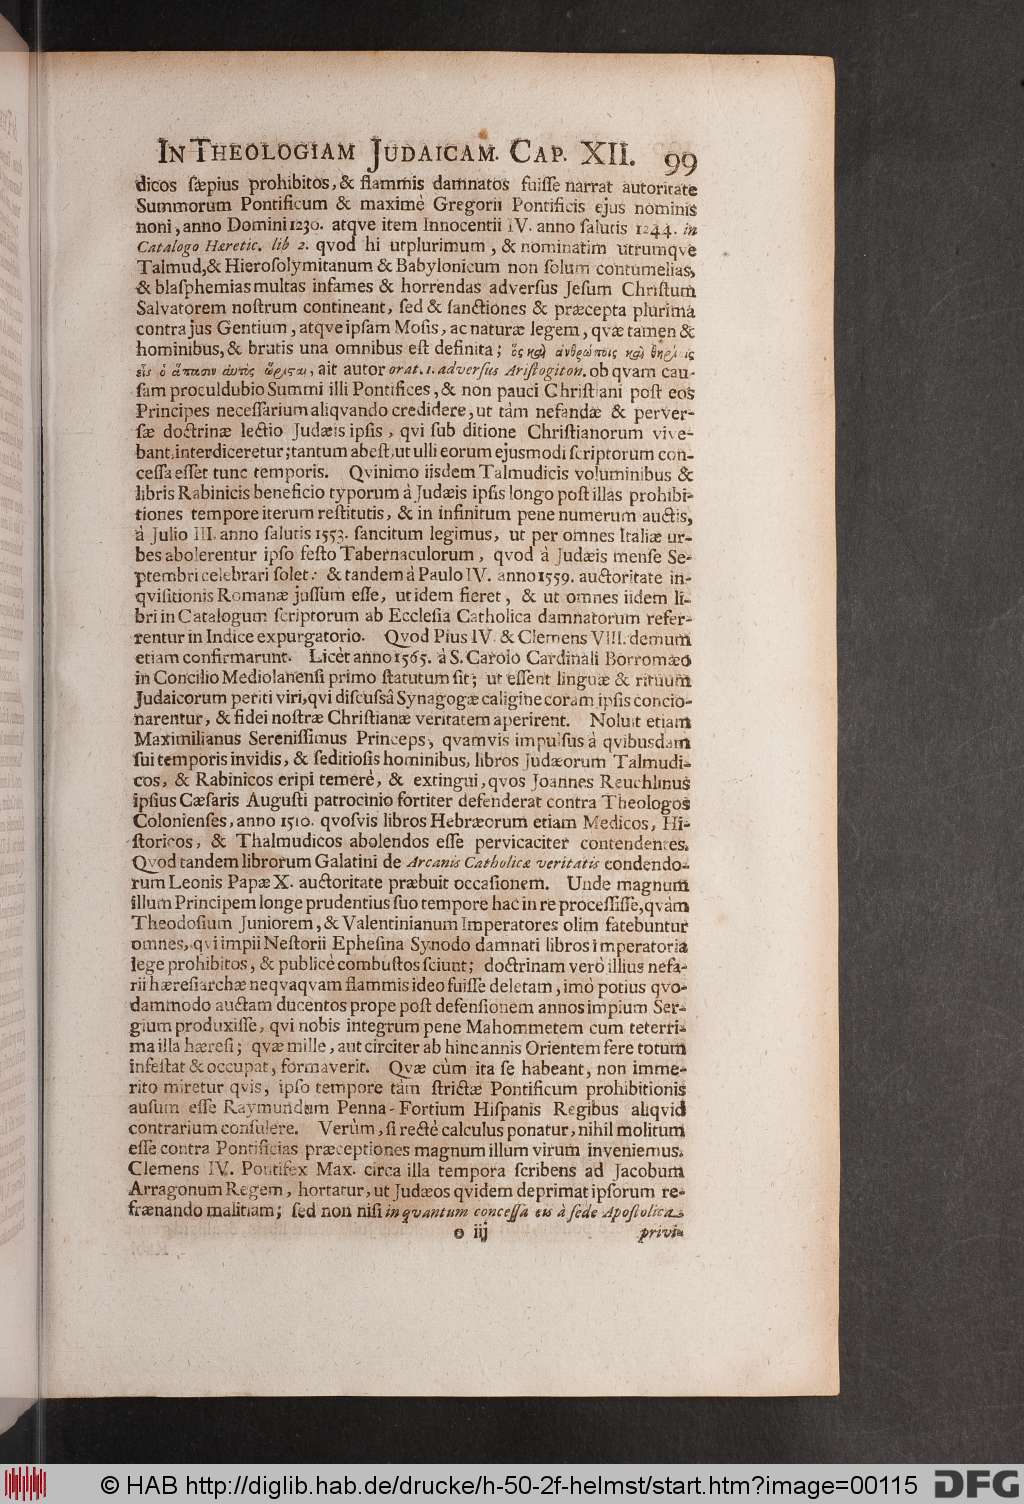 IN THEOLOGIAM JUDAICAM. CAP. XII. 99
dicos sæpius prohibitos, & flammis damnatos fuisse narrat autoritate
Summorum Pontificum & maximè Gregorii Pontificis ejus nominis
noni, anno Domini 1230. atqve item Innocentii IV. anno salutis 1244. in
Catalogo Hæretic. lib 2. qvod hi utplurimum, & nominatim utrumqve
Talmud, & Hierosolymitanum & Babylonicum non solum contumelias,
& blasphemias multas infames & horrendas adversus Jesum Christum
Salvatorem nostrum contineant, sed & sanctiones & præcepta plurima
contra jus Gentium, atqve ipsam Mosis, ac naturæ legem, qvæ tamen &
hominibus, & brutis una omnibus est definita; ὃς καὶ ἀνθρώποις καὶ
ait autor orat. 1. adversus Aristogiton. ob qvam cau-
sam proculdubio Summi illi Pontifices, & non pauci Christiani post eos
Principes necessarium aliqvando credidere, ut tàm nefandæ & perver-
sæ doctrinæ lectio Judæis ipsis, qvi sub ditione Christianorum vive-
bant, interdiceretur; tantum abest, ut ulli eorum ejusmodi scriptorum con-
cessa esset tunc temporis. Qvinimo iisdem Talmudicis voluminibus &
libris Rabinicis beneficio typorum à Judæis ipsis longo post illas prohibi-
tiones tempore iterum restitutis, & in infinitum pene numerum auctis,
à Julio III. anno salutis 1553. sancitum legimus, ut per omnes Italiæ ur-
bes abolerentur ipso festo Tabernaculorum, qvod à Judæis mense Se-
ptembri celebrari solet: & tandem à Paulo IV. anno 1559. auctoritate in-
qvisitionis Romanæ jussum esse, ut idem fieret, & ut omnes iidem li-
bri in Catalogum scriptorum ab Ecclesia Catholica damnatorum refer-
rentur in Indice expurgatorio. Qvod Pius IV. & Clemens VIII. demum
etiam confirmarunt. Licèt anno 1565. à S. Carolo Cardinali Borromæo
in Concilio Mediolanensi primo statutum sit; ut essent linguæ & rituum
Judaicorum periti viri, qvi discussâ Synagogæ caligine coram ipsis concio-
narentur, & fidei nostræ Christianæ veritatem aperirent. Noluit etiam
Maximilianus Serenissimus Princeps, qvamvis impulsus à qvibusdam
sui temporis invidis, & seditiosis hominibus, libros Judæorum Talmudi-
cos, & Rabinicos eripi temerè, & extingui, qvos Joannes Reuchlinus
ipsius Cæsaris Augusti patrocinio fortiter defenderat contra Theologos
Colonienses, anno 1510. qvosvis libros Hebræorum etiam Medicos, Hi-
storicos, & Thalmudicos abolendos esse pervicaciter contendentes.
Qvod tandem librorum Galatini de Arcanis Catholicæ veritatis condendo-
rum Leonis Papæ X. auctoritate præbuit occasionem. Unde magnum
illum Principem longe prudentius suo tempore hac in re processisse, qvàm
Theodosium Juniorem, & Valentinianum Imperatores olim fatebuntur
omnes, qvi impii Nestorii Ephesina Synodo damnati libros imperatoria
lege prohibitos, & publicè combustos sciunt; doctrinam verò illius nefa-
rii hæresiarchæ neqvaqvam flammis ideo fuisse deletam, imò potius qvo-
dammodo auctam ducentos prope post defensionem annos impium Ser-
gium produxisse, qvi nobis integrum pene Mahommetem cum teterri-
ma illa hæresi; qvæ mille, aut circiter ab hinc annis Orientem fere totum
infestat & occupat, formaverit. Qvæ cùm ita se habeant, non imme-
rito miretur qvis, ipso tempore tàm strictæ Pontificum prohibitionis
ausum esse Raymundum Penna-Fortium Hispanis Regibus aliqvid
contrarium consulere. Verùm, si rectè calculus ponatur, nihil molitum
esse contra Pontificias præceptiones magnum illum virum inveniemus.
Clemens IV. Pontifex Max. circa illa tempora scribens ad Jacobum
Arragonum Regem, hortatur, ut Judæos qvidem deprimat ipsorum re-
frænando malitiam; sed non nisi in quantum concessa eis à sede Apostolica
iij privi-
© HAB http://diglib.hab.de/drucke/h-50-2f-helmst/start.htm?image=00115 DFG